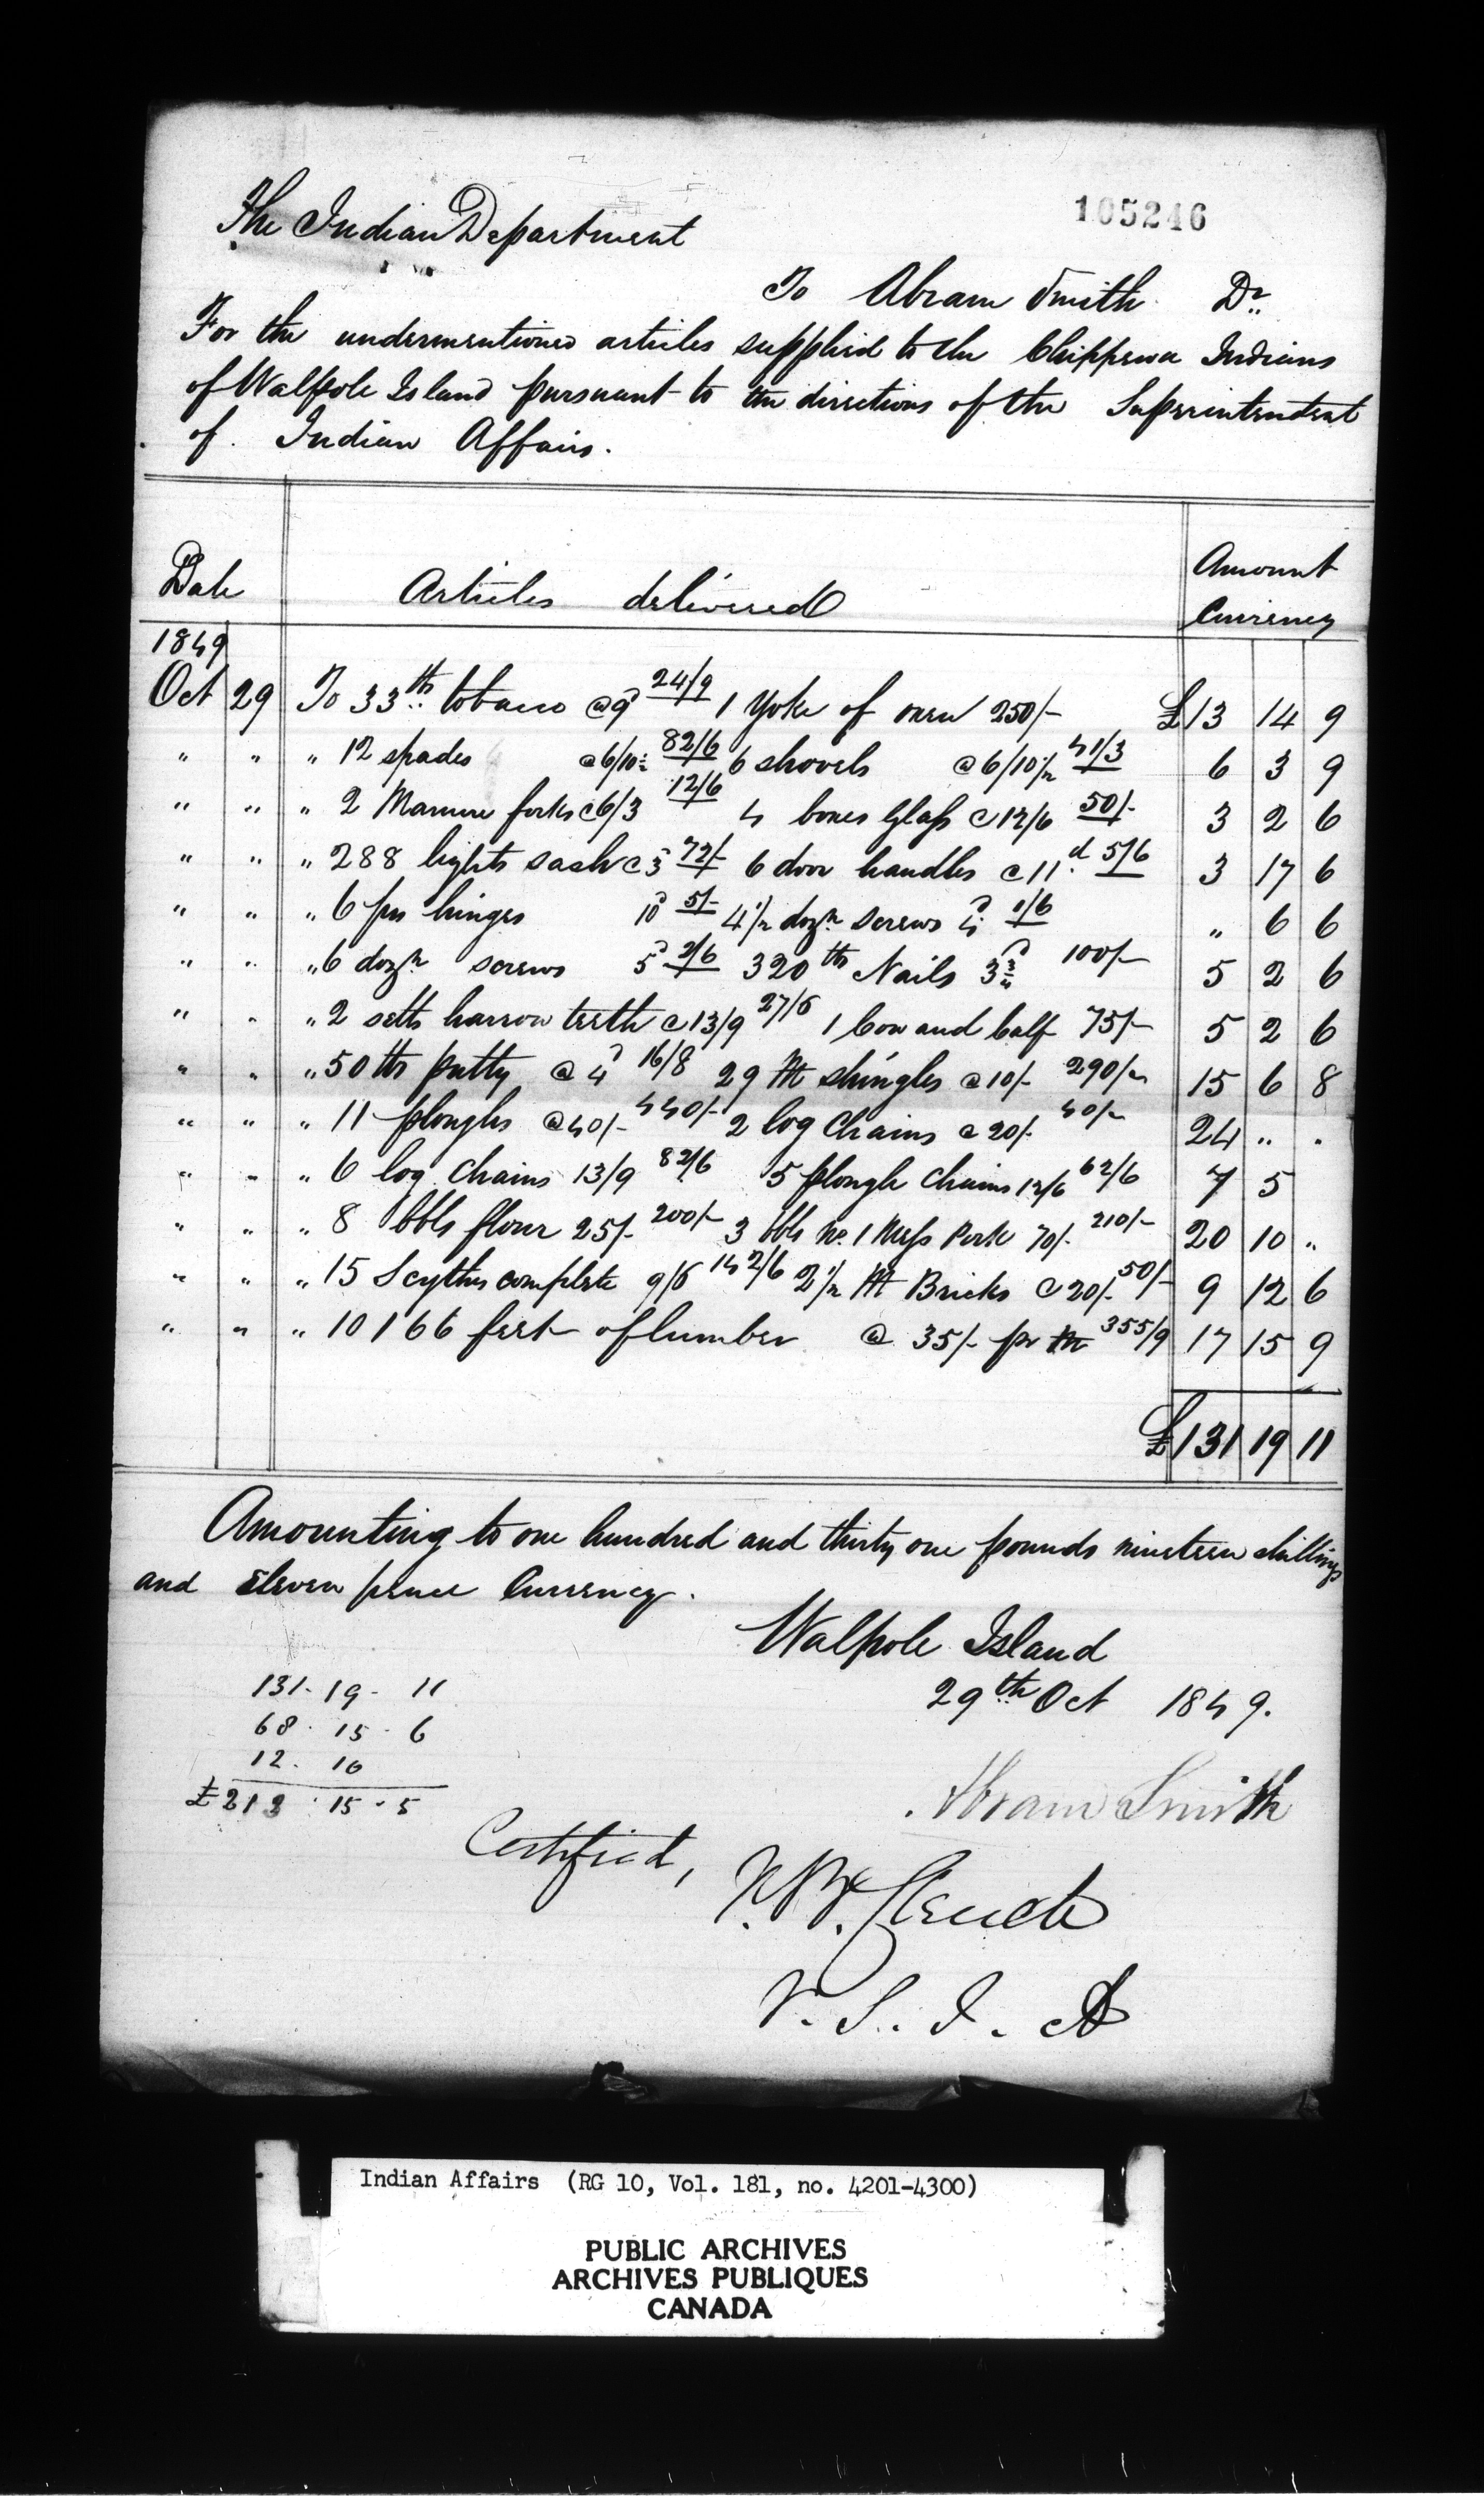 105246
The Indian Department
To Abram Smith Dr.
For the undermentioned articles supplied to the Chippewa Indians
of Walpole Island pursuant to the directions of the Superintendent
of Indian Affairs.
Date Articles delivered Amount Currency
1849
Oct 29 To 33 lb tobacco @ 9d 24/9 1 Yoke of oxen 250/- £13 14 9
" " " 12 spades @ 6/10½ 82/6 6 shovels @ 6/10½ 41/3 6 3 9
" " " 2 Manure forks @ 6/3 12/6 4 boxes Glass @ 12/6 50/- 3 2 6
" " " 288 lights sash @ 3d 72/- 6 door handles @ 11d 5/6 3 17 6
" " " 6 prs hinges 10d 5/- 4½ dozn screws 4d 1/6 " 6 6
" " " 6 dozn screws 5d 2/6 320 lbs Nails 3¾d 100/- 5 2 6
" " " 2 setts harrow teeth @ 13/9 27/6 1 Cow and Calf 75/- 5 2 6
" " " 50 lbs putty @ 4d 16/8 29 M shingles @ 10/- 290/- 15 6 8
" " " 11 ploughs @ 40/- 440/- 2 log Chains @ 20/- 40/- 24 " "
" " " 6 log Chains 13/9 82/6 5 plough Chains 12/6 62/6 7 5
" " " 8 bbls flour 25/- 200/- 3 bbls No. 1 Mess Pork 70/- 210/- 20 10 "
" " " 15 Scythes complete 9/6 142/6 2½ M Bricks @ 20/- 50/- 9 12 6
" " " 10166 feet of lumber @ 35/- pr M 355/9 17 15 9
£131 19 11
Amounting to one hundred and thirty one pounds nineteen shillings
and Eleven pence Currency.
Walpole Island
29th Oct 1849.
131. 19. 11
68. 15. 6
12. 10
£213. 15. 5
Abram Smith
Certified,
J. B. Clench
V. S. I. A
Indian Affairs (RG 10, Vol. 181, no. 4201-4300)
PUBLIC ARCHIVES
ARCHIVES PUBLIQUES
CANADA